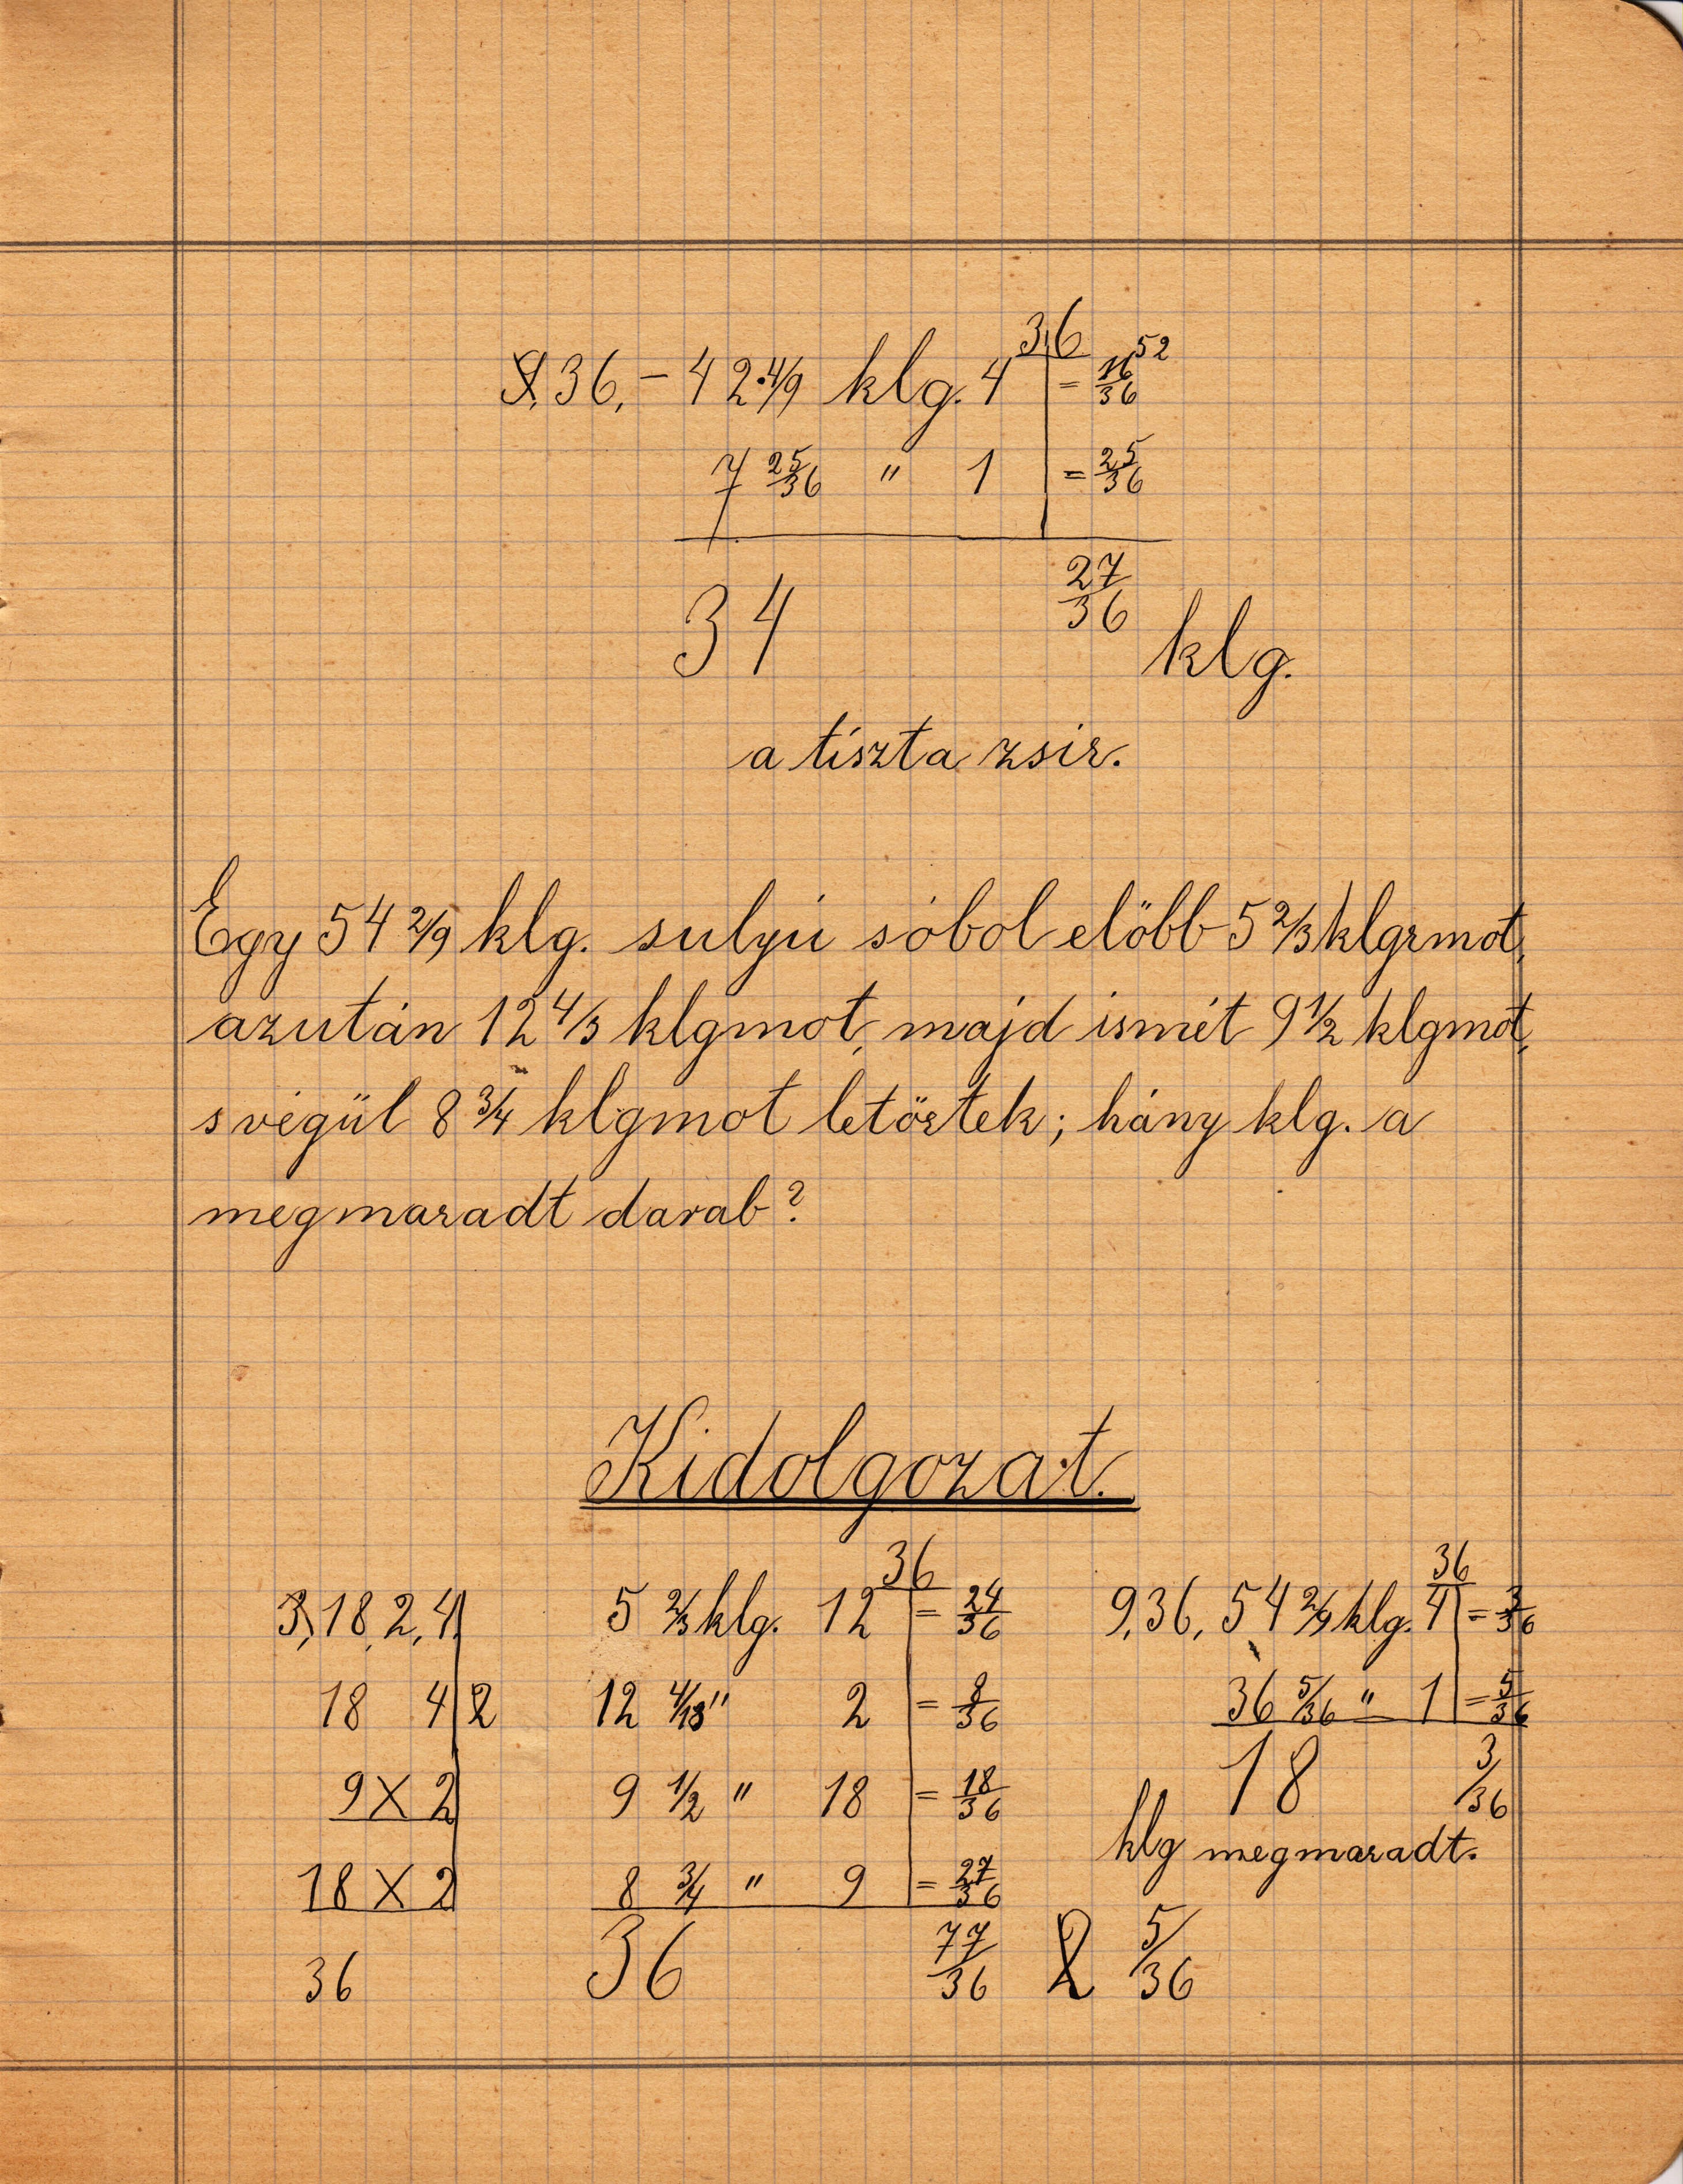 9,36,- 42 4/9 klg. 4 | 36 = 16/36 52
7 25/36 " 1 | = 25/36
34 27/36 klg.
a tiszta zsir.
Egy 54 2/9 klg. sulyú sóbol elöbb 5 2/3 klgrmot,
azután 12 4/3 klgmot, majd ismét 9 1/2 klgmot,
s végül 8 3/4 klgmot letörtek; hány klg. a
megmaradt darab?
Kidolgozat.
3, 18, 2, 4
18 4 | 2
9 X 2
18 X 2
36
36
5 2/3 klg. 12 | = 24/36
12 4/18 " 2 | = 8/36
9 1/2 " 18 | = 18/36
8 3/4 " 9 | = 27/36
36 77/36 2 5/36
36
9,36, 54 2/9 klg. 4 | =
36 5/36 " 1 | = 5/36
18 3/36
klg megmaradt.